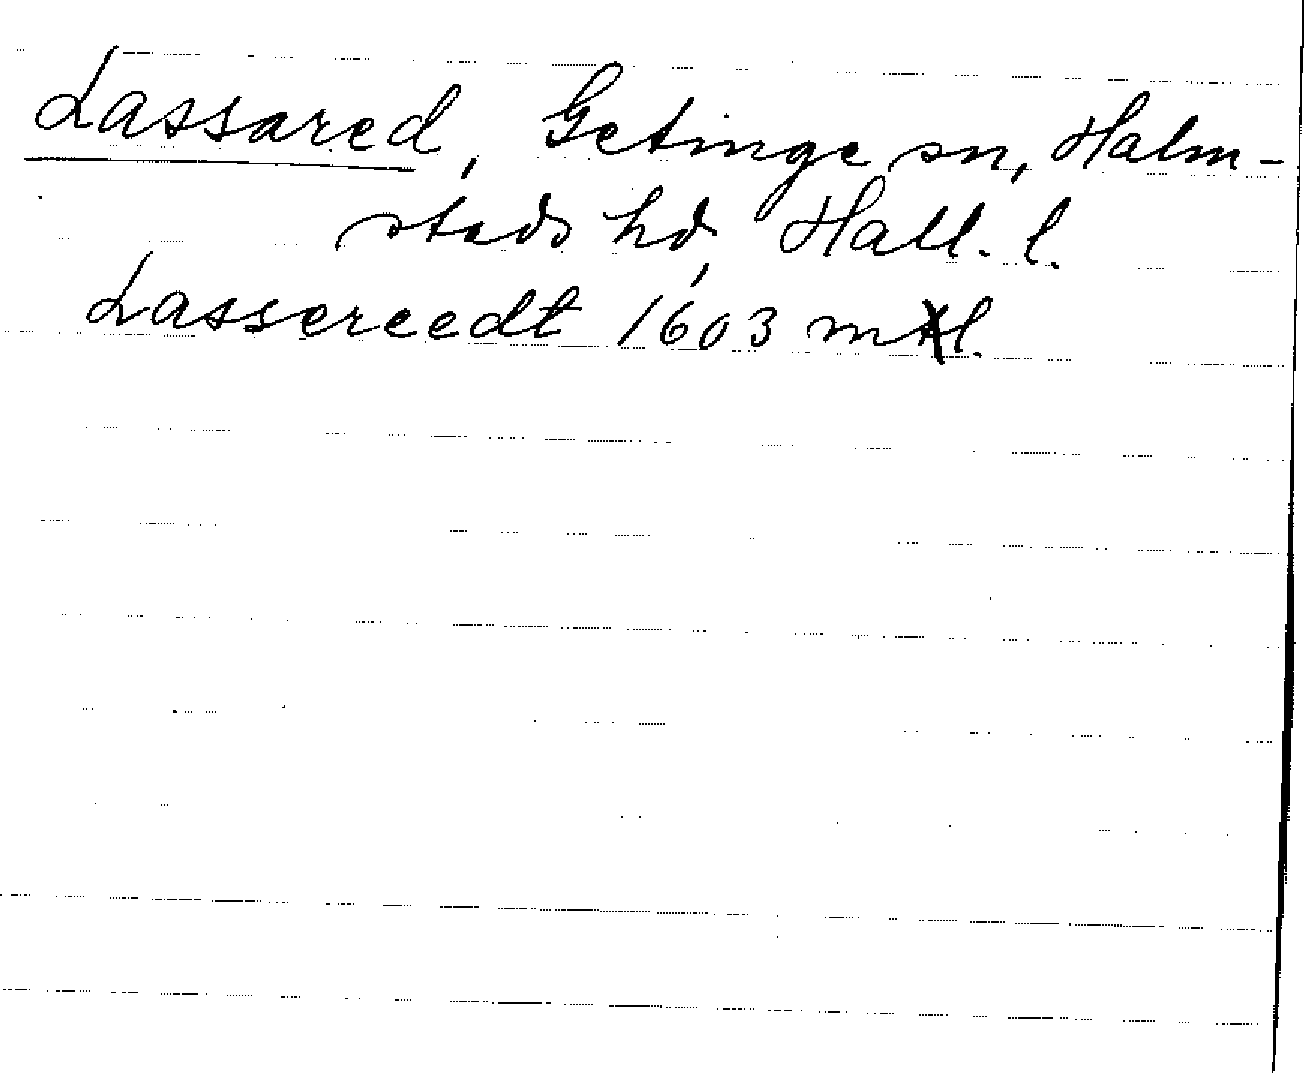 Lassared, Getinge sn, Halm-
stads hd, Hall. l.
Lassereedt 1603 mkl.